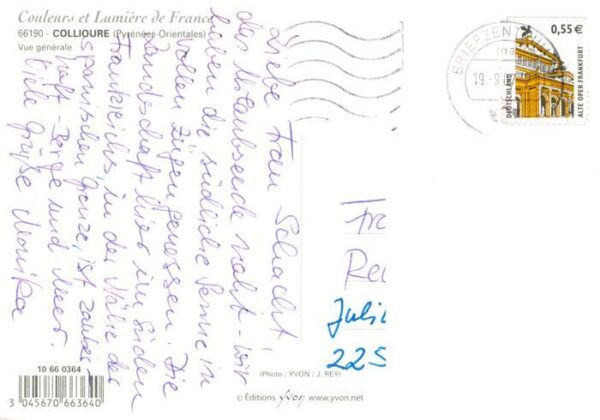 Couleurs et Lumière de France
66190 - COLLIOURE (Pyrénées-Orientales)
Vue générale
Liebe Frau Schacht,
das Urlaubsende naht - wir
haben die südliche Sonne in
vollen Zügen genossen. Die
Landschaft hier im Süden
Frankreichs, in der Nähe der
spanischen Grenze, ist zauber-
haft - Berge und Meer.
Viele Grüße Monika
10 66 0364
3 045670 663640
(Photo : YVON / J. REY)
© Éditions yvon www.yvon.net
BRIEFZENTRUM
19.-9.
0,55 €
DEUTSCHLAND
ALTE OPER FRANKFURT
Fr
Re
Juli
225